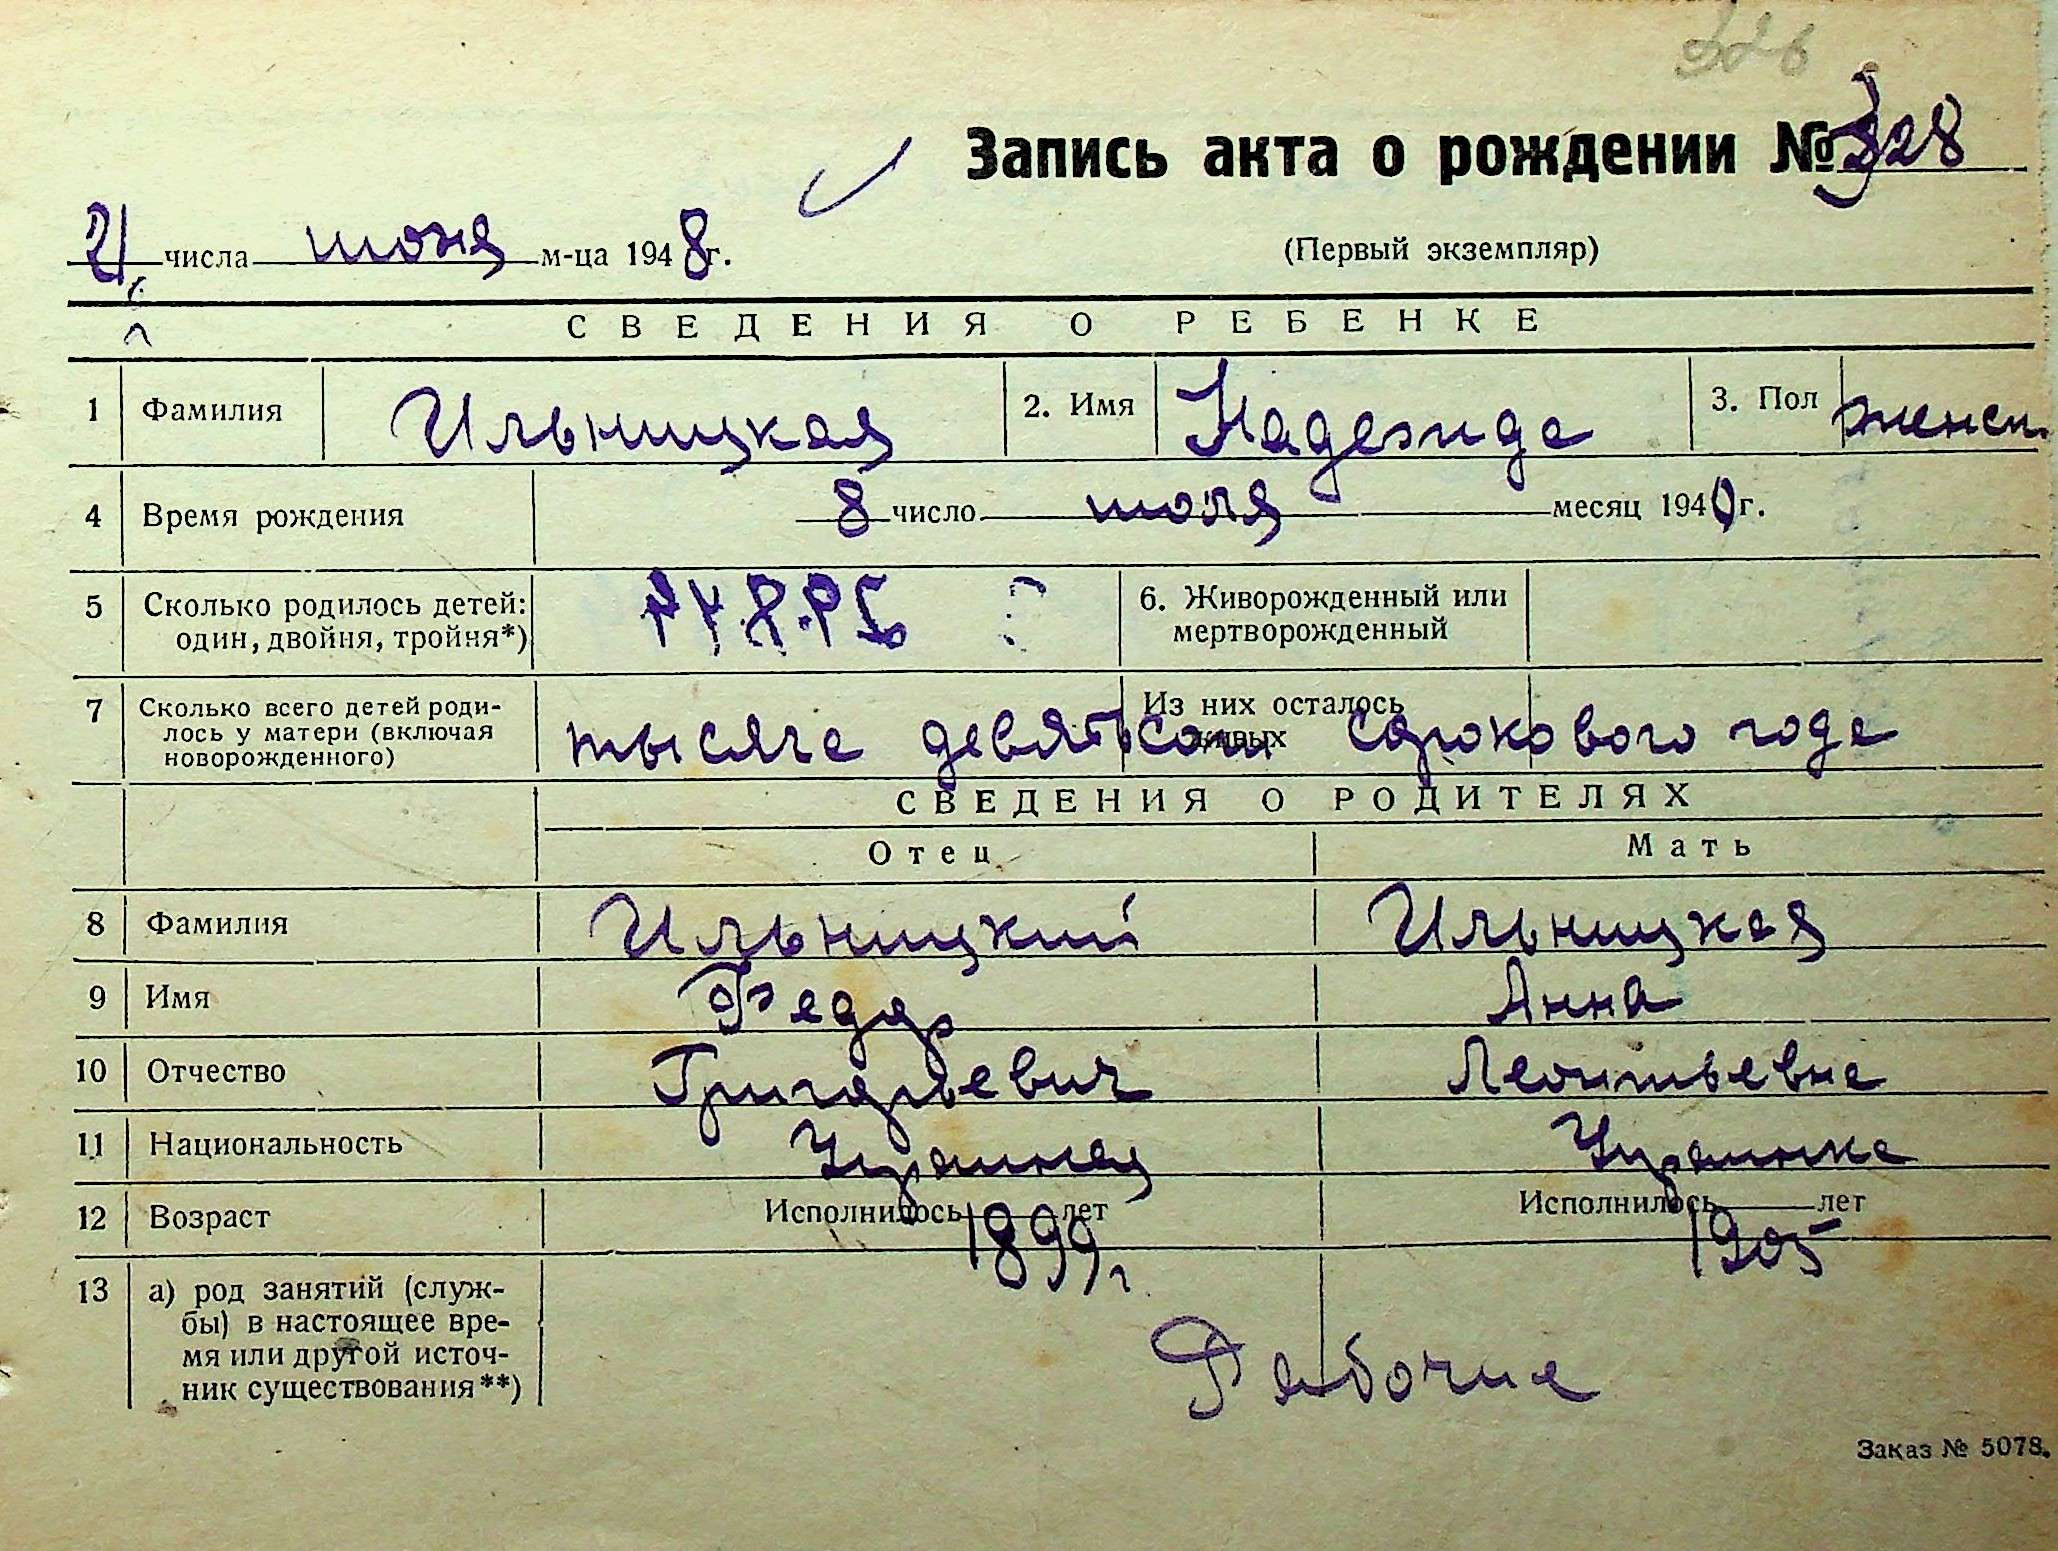 326
Запись акта о рождении № 328
21 числа июня м-ца 1948 г.
(Первый экземпляр)
СВЕДЕНИЯ О РЕБЕНКЕ
1 Фамилия Ильницкая 2. Имя Надежда 3. Пол женск.
4 Время рождения 8 число июля месяц 1940 г.
5 Сколько родилось детей: 6. Живорожденный или
один, двойня, тройня*) мертворожденный
7 Сколько всего детей роди- Из них осталось
лось у матери (включая живых
новорожденного)
тысяча девятсот сорокового года
СВЕДЕНИЯ О РОДИТЕЛЯХ
Отец Мать
8 Фамилия Ильницкий Ильницкая
9 Имя Федор Анна
10 Отчество Григорьевич Леонтьевна
11 Национальность Украинец Украинка
12 Возраст Исполнилось лет Исполнилось лет
1899 г. 1905
13 а) род занятий (служ-
бы) в настоящее вре-
мя или другой источ-
ник существования**)
Рабочие
Заказ № 5078.